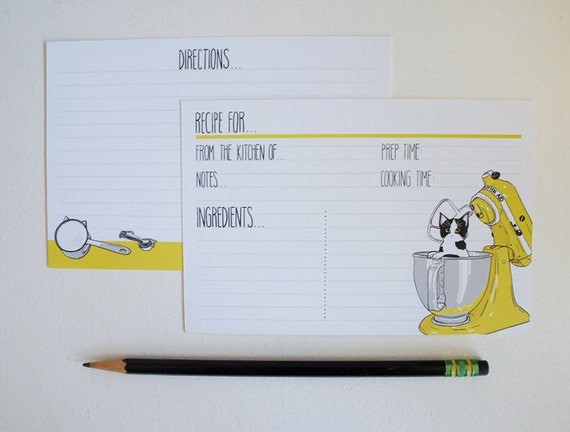 DIRECTIONS...
RECIPE FOR...
FROM THE KITCHEN OF...
PREP TIME:
NOTES...
COOKING TIME:
INGREDIENTS...